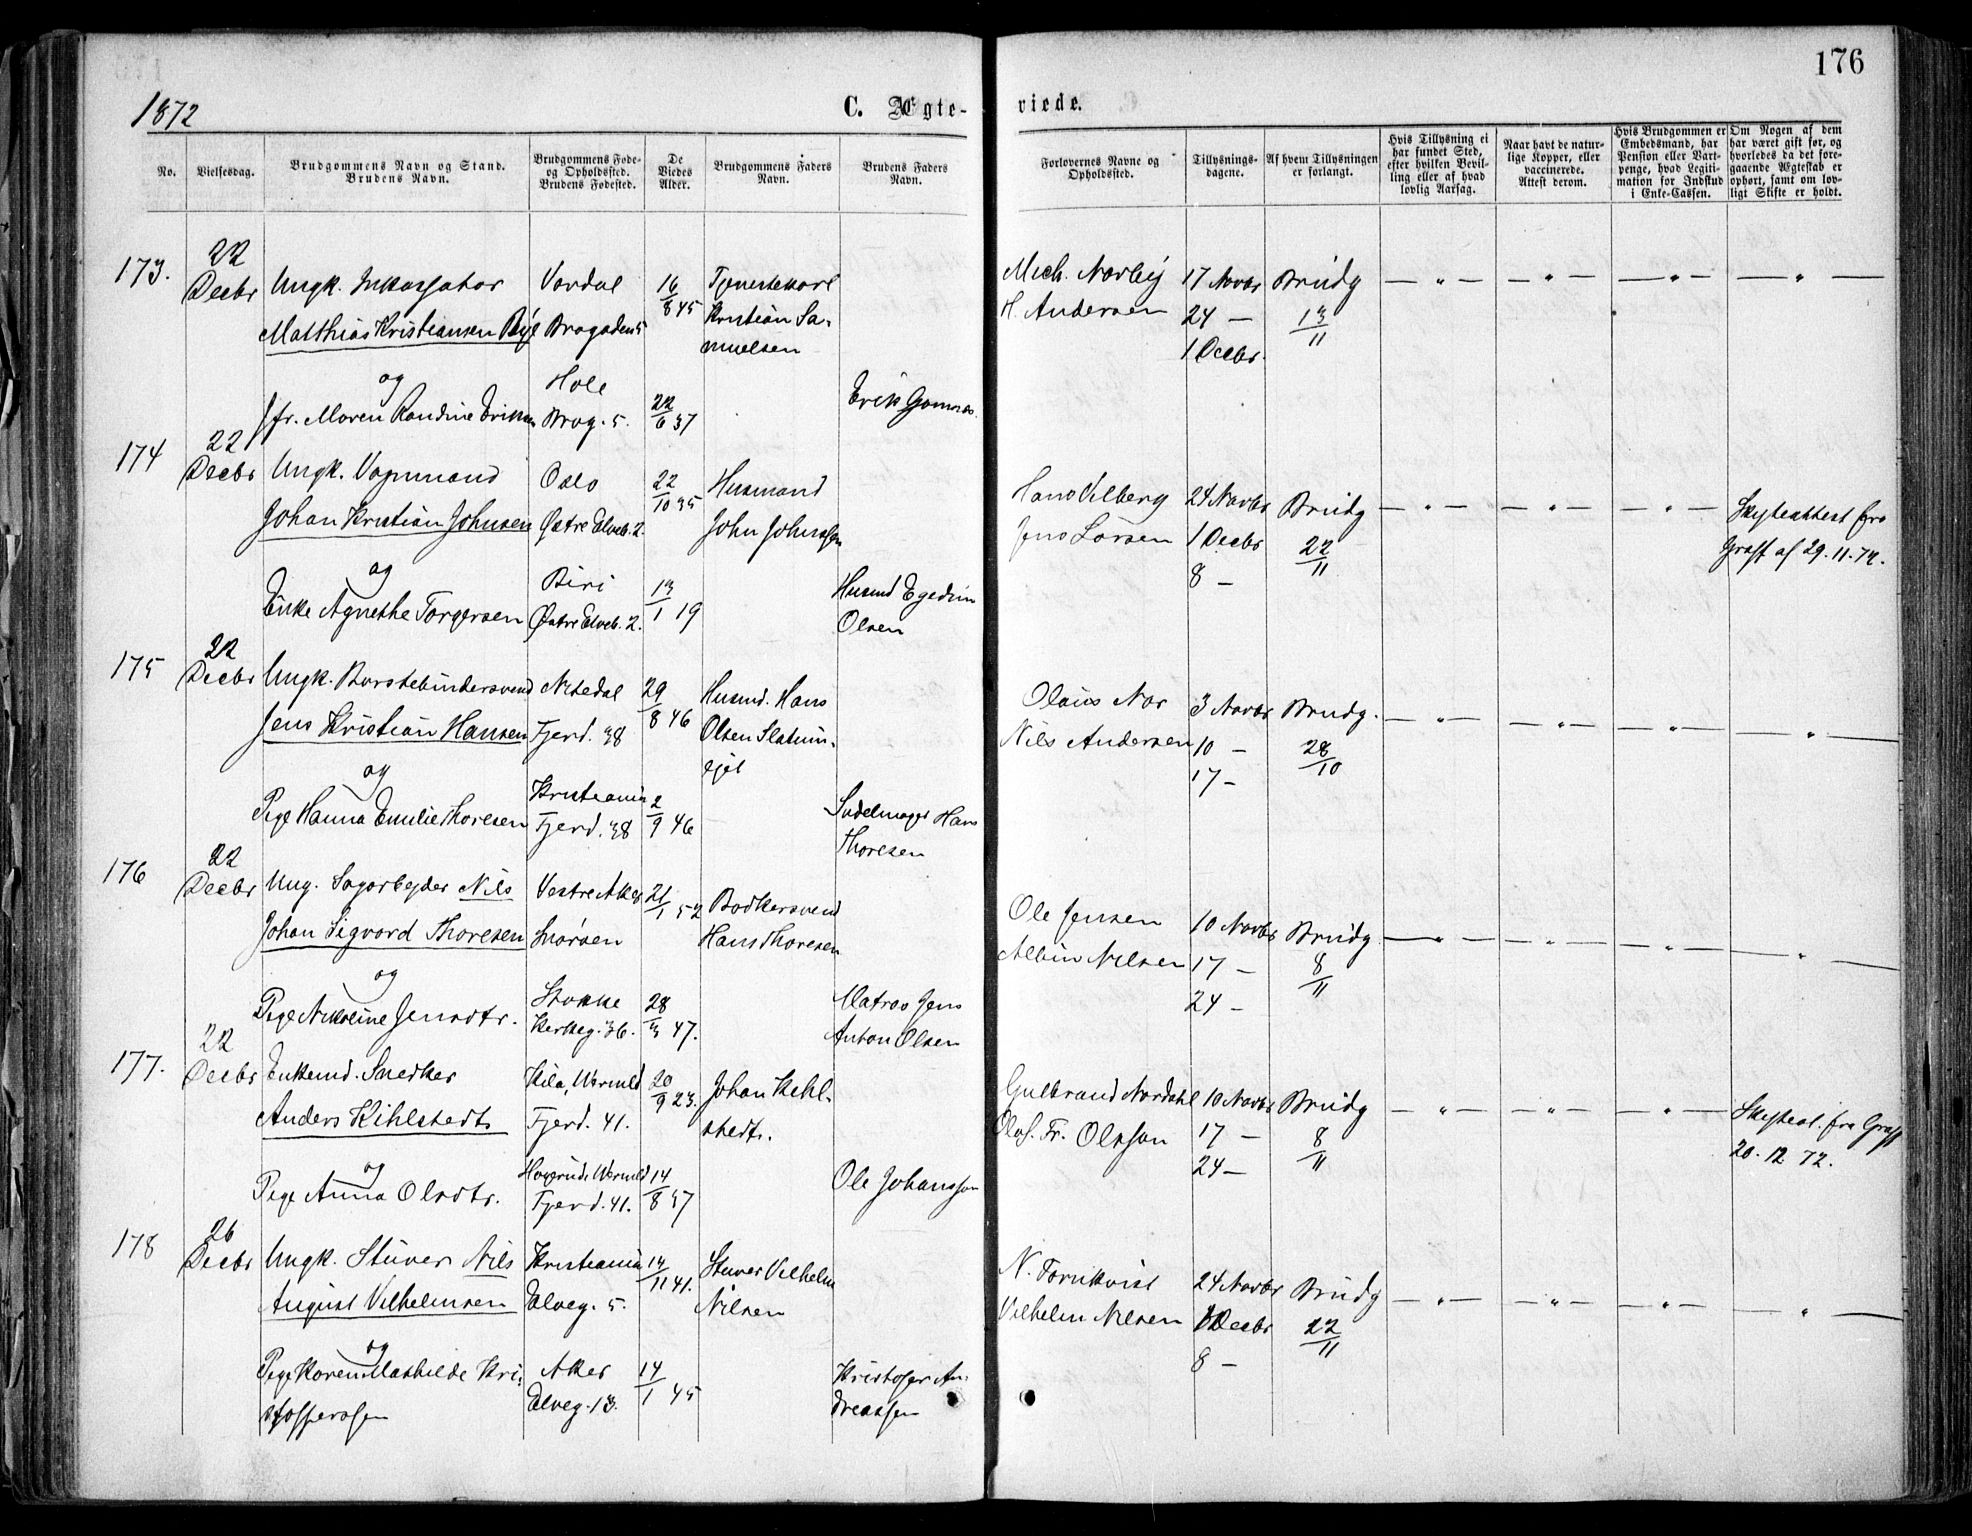 176
1872
C. Ægte-
viede.
No.
Vielsesdag.
Brudgommens Navn og Stand.
Brudens Navn.
Brudgommens Føde-
og Opholdssted.
Brudens Fødested.
De
Viedes
Alder.
Brudgommens Faders
Navn.
Brudens Faders
Navn.
Forlovernes Navne og
Opholdssted.
Tillysnings-
dagene.
Af hvem Tillysningen
er forlangt.
Hvis Tillysning ei
har fundet Sted,
efter hvilken Bevil-
ling eller af hvad
lovlig Aarsag.
Naar havt de natur-
lige Kopper, eller
vaccinerede.
Attest derom.
Hvis Brudgommen er
Embedsmand, har
Pension eller Vart-
penge, hvad Legiti-
mation for Indskud
i Enke-Cassen.
Om Nogen af dem
har været gift før, og
hvorledes da det fore-
gaaende Ægteskab er
ophørt, samt om lov-
ligt Skifte er holdt.
173.
22
Decbr
Ungk. Inkassator
Matthias Kristiansen Bye
og
Jfr. Maren Randine Eriksen
Vardal
Brogaden 5
Hole
Brog. 5.
16/8 45
22/6 37
Tjenestekarl
Kristian Sa-
muelsen
Erik Gomnæs.
Mich. Narbye
H. Andersen
17 Novbr
24 —
1 Decbr.
Brudg
13/11
— " — — " — — " — "
174
22
Decbr
Ungk. Vognmand
Johan Kristian Johnsen
og
Enke Agnethe Torgersen
Oslo
Østre Elveb. 2.
Biri
Østre Elveb. 2.
22/10 35
13/1 19
Husmand
John Johnssen
Husmd Egedius
Olsen
Hans Vilberg
Jens Larsen
24 Novbr
1 Decbr
8 —
Brudg
22/11
— " — — " — — " —
Skifteattest fra
Graff af 29.11.72.
175
22
Decbr
Ungk. Børstebindersvend
Jens Kristian Hansen
og
Pige Hanna Emilie Thoresen
Nitedal
Fjerd. 38
Kristiania
Fjerd. 38
29/8 46
2/9 46
Husmd. Hans
Olsen Slatum-
ejet
Sadelmager Hans
Thoresen
Olaus Nor
Nils Andersen
3 Novbr
10 —
17 —
Brudg.
28/10
— " — — " — — " — "
176
22
Decbr
Ung. Sagarbejder Nils
Johan Sigvard Thoresen
og
Pige Nikoline Jensdtr.
Vestre Aker
Snarøen
Stokke
Kirkeg. 36.
21/1 52
28/3 47.
Bødkersvend
Hans Thoresen
Matros Jens
Anton Olsen
Ole Jensen
Albin Nilsen
10 Novbr
17 —
24 —
Brudg
8/11
— " — — " — — " — "
177.
22
Decbr
Enkemd. Snedker
Anders Kihlstedt
og
Pige Anna Olsdtr.
Kila, Wermld
Fjerd. 41.
Høgerud, Wermld
Fjerd. 41.
20/9 23.
14/8 37
Johan Kihl-
stedt.
Ole Johansson
Gulbrand Nordahl
Olof. Fr. Olsson
10 Novbr
17 —
24 —
Brudg
8/11
— " — — " — — " —
Skifteat. fra Graff
20.12.72.
178
26
Decbr
Ungk. Stuver Nils
August Vilhelmsen
og
Pige Karen Mathilde Kri-
stoffersen
Kristiania
Elveg. 5.
Aker
Elveg. 13.
14/11 41.
14/1 45
Stuver Vilhelm
Nilsen
Kristofer An-
dreassen
N. Tornkvist
Vilhelm Nilsen
24 Novbr
1 Decbr
8 —
Brudg
22/11
— " — — " — — " — "